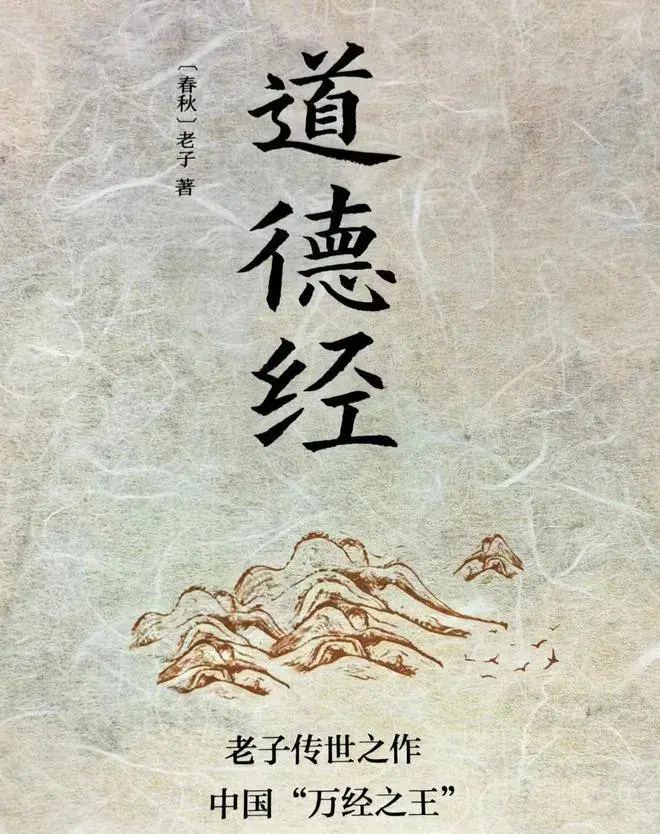 道德经
〔春秋〕老子 著
老子传世之作
中国“万经之王”